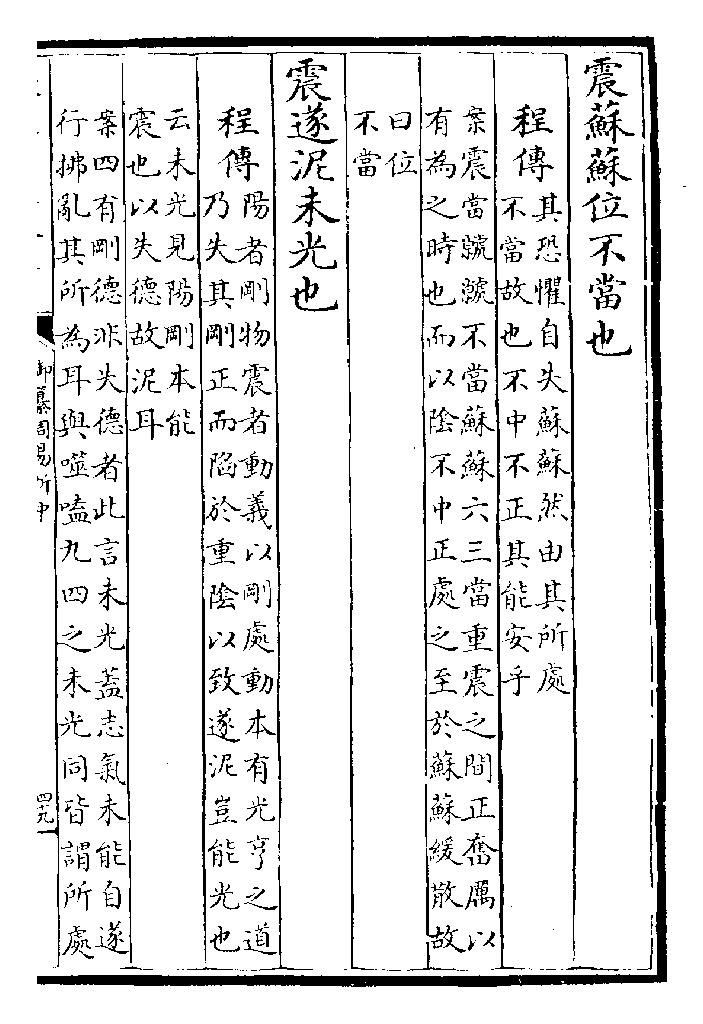 震蘇蘇位不當也
程傳
其恐懼自失蘇蘇然由其所處
不當故也不中不正其能安乎
案震當虩虩不當蘇蘇六三當重震之間正奮厲以
有為之時也而以陰不中正處之至於蘇蘇緩散故
曰位
不當
震遂泥未光也
程傳
陽者剛物震者動義以剛處動本有光亨之道
乃失其剛正而陷於重陰以致遂泥豈能光也
云未光見陽剛本能
震也以失德故泥耳
案四有剛德非失德者此言未光蓋志氣未能自遂
行拂亂其所為耳與噬嗑九四之未光同皆謂所處
御纂周易折中